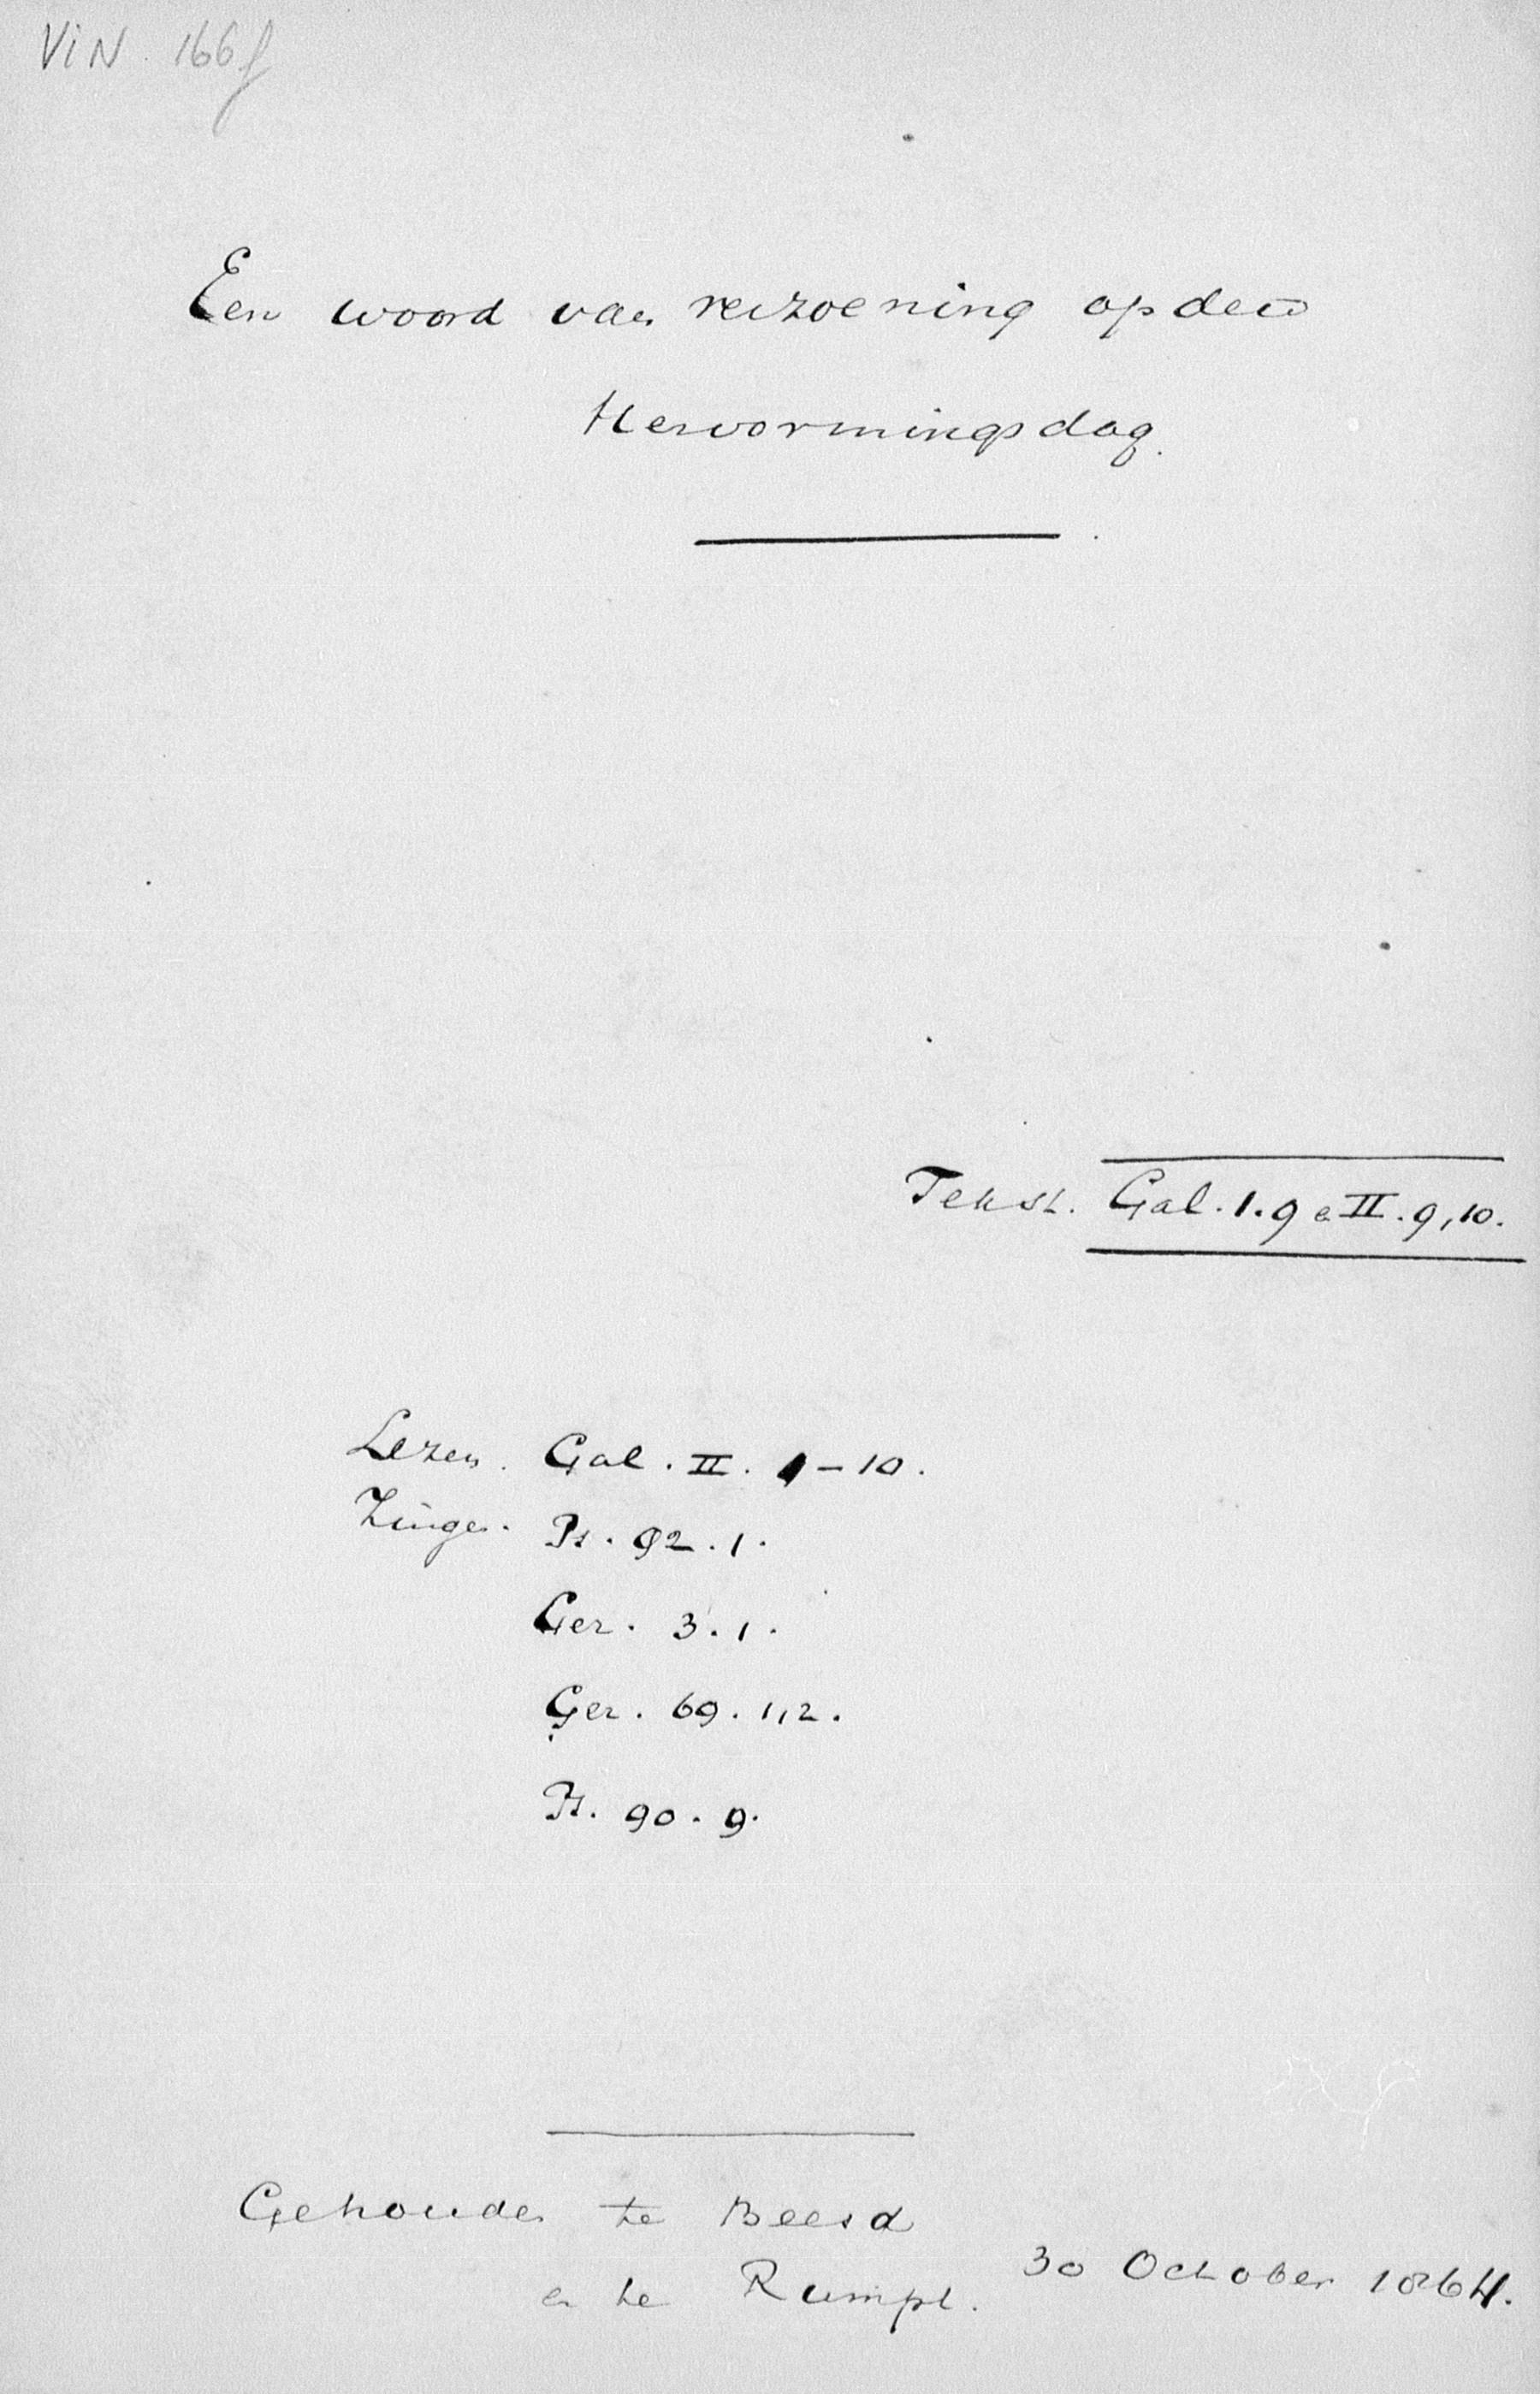 ViN. 166f
Een woord van verzoening op den
Hervormingsdag.
Tekst. Gal. 1.9 en II. 9, 10.
Lezen. Gal. II. 1-10.
Zingen. Ps. 92. 1.
Gez. 3. 1.
Gez. 69. 1,2.
Ps. 90. 9.
Gehouden te Beesd
en te Rumpt. 30 October 1864.